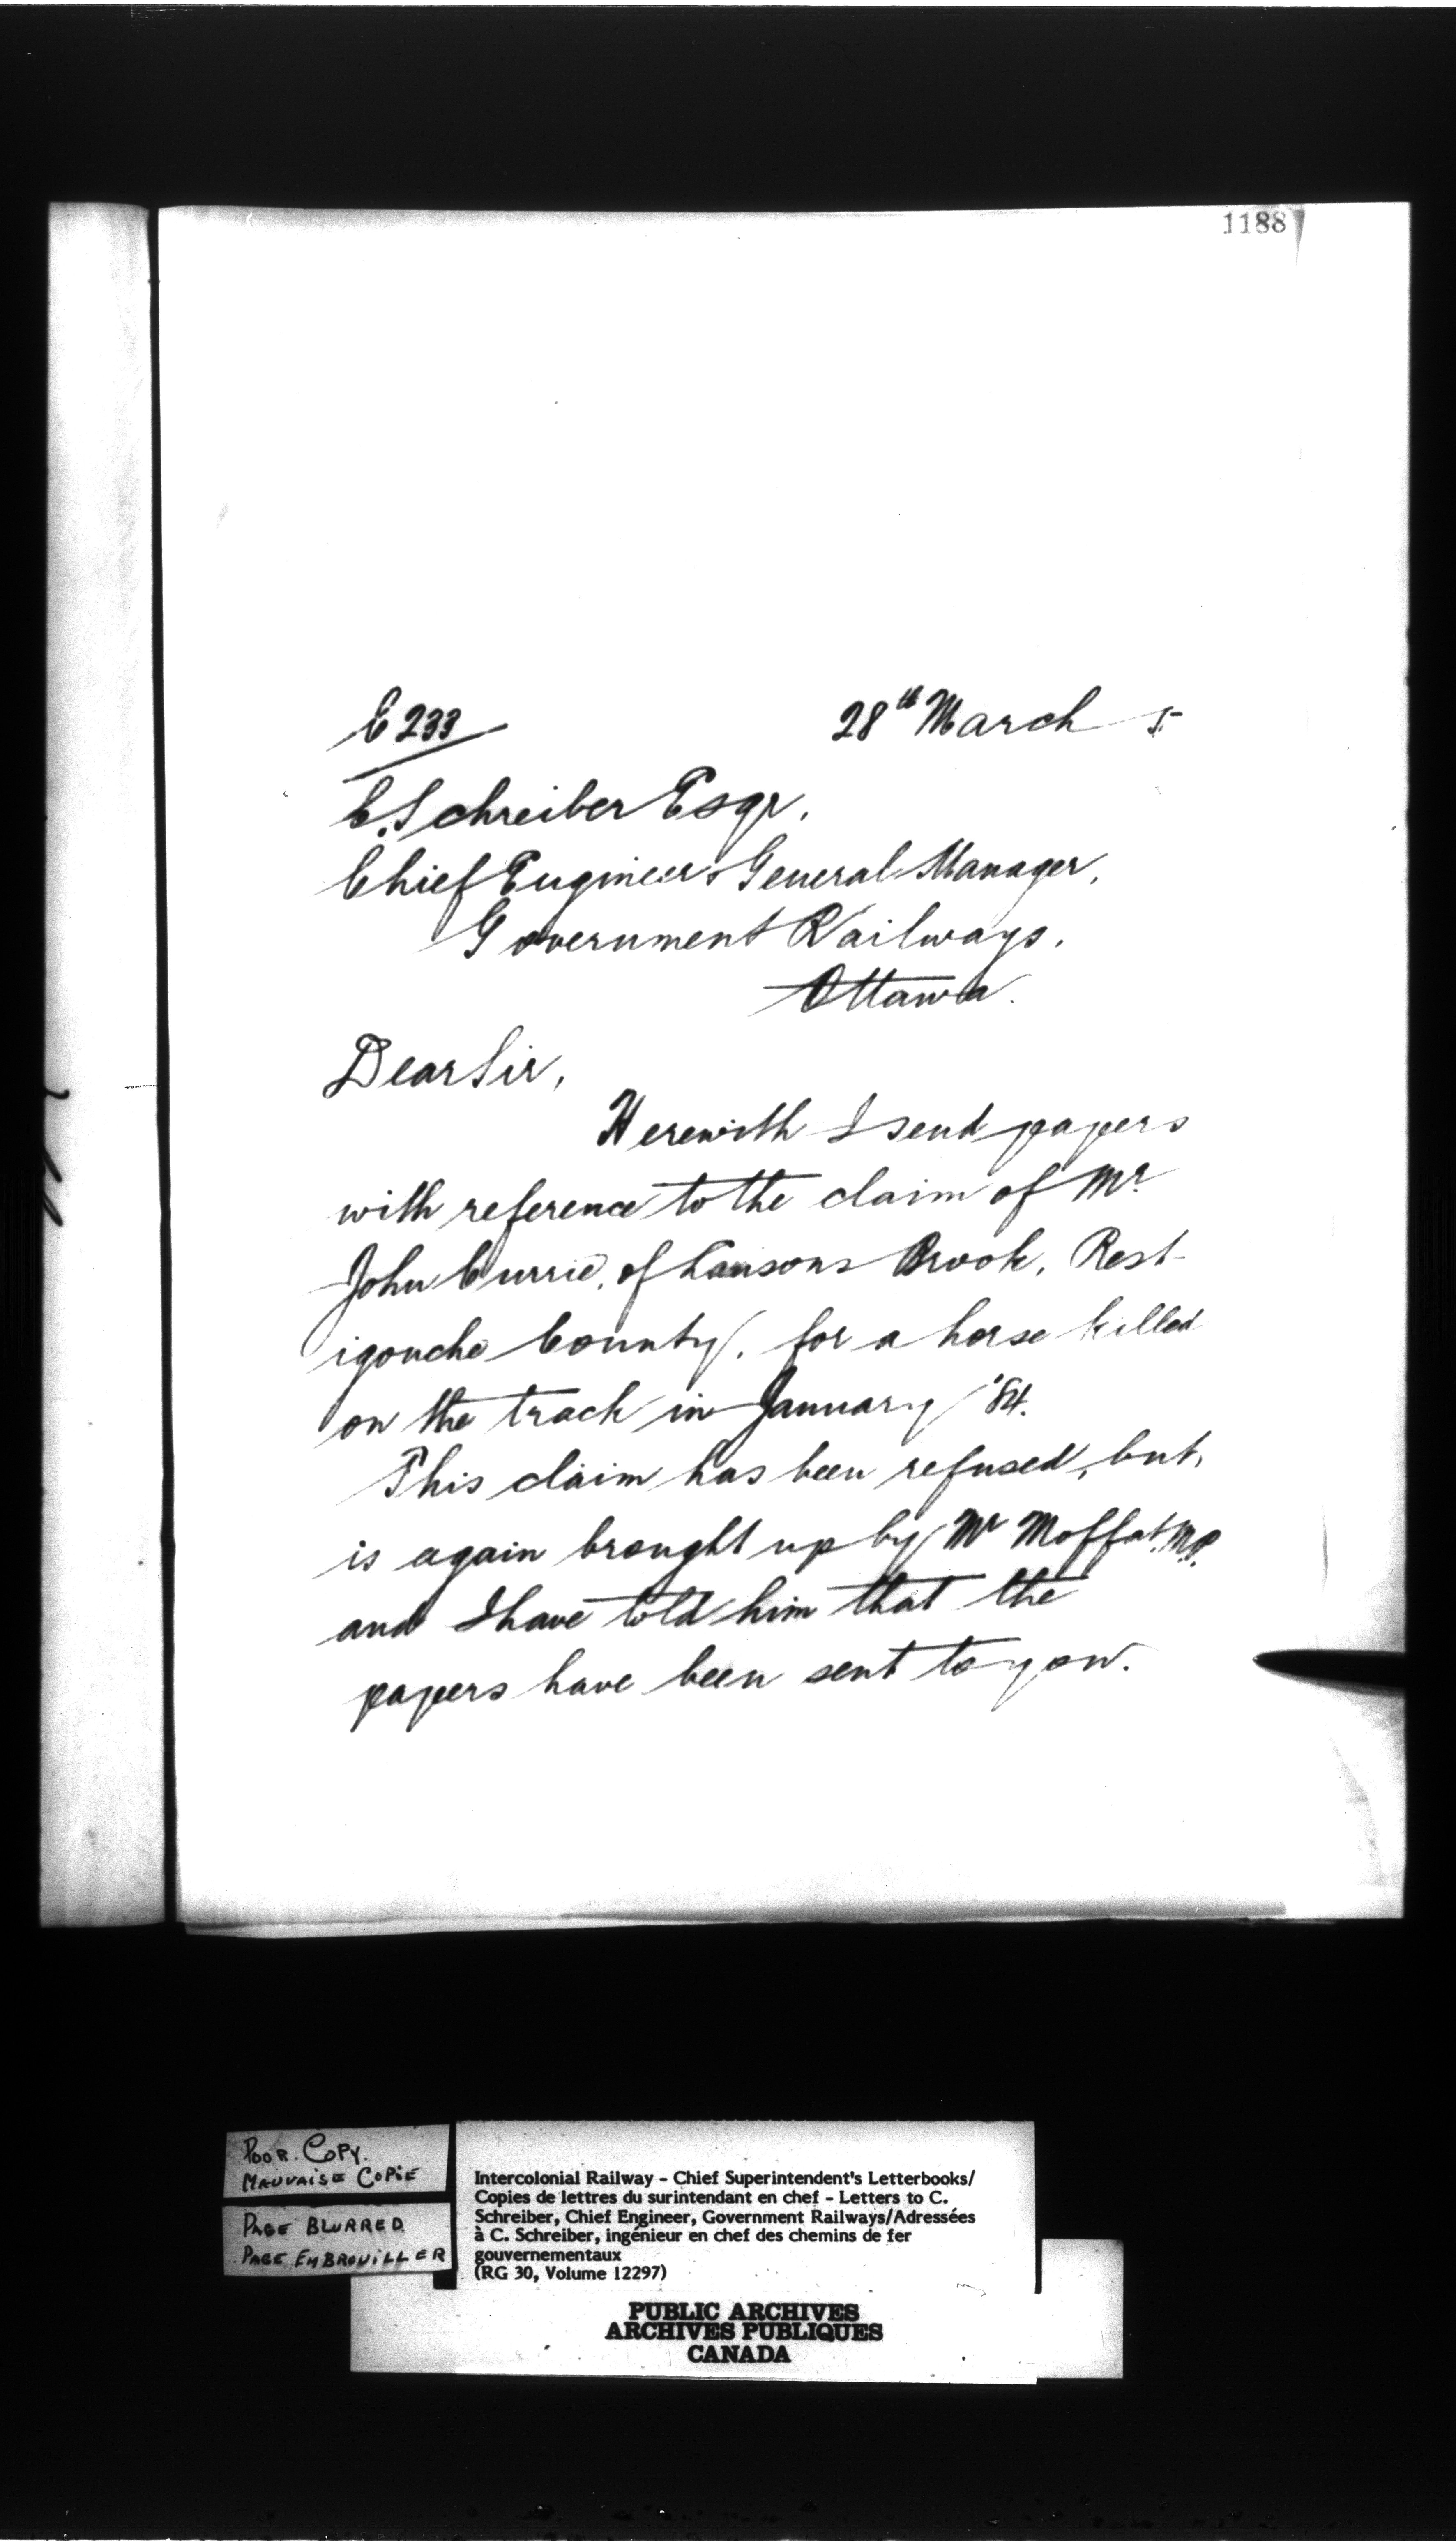 1188
C 233
28th March 5
C. Schreiber Esqr.
Chief Engineer & General Manager,
Government Railways.
Ottawa.
Dear Sir,
Herewith I send papers
with reference to the claim of Mr
John Currie, of Brook, Rest-
igouche County, for a horse killed
on the track in January '84.
This claim has been refused, but,
is again brought up by Mr Moffat M.P.
and I have told him that the
papers have been sent to you.
POOR COPY.
MAUVAISE COPIE
PAGE BLURRED
PAGE EMBROUILLER
Intercolonial Railway - Chief Superintendent's Letterbooks/
Copies de lettres du surintendant en chef - Letters to C.
Schreiber, Chief Engineer, Government Railways/Adressées
à C. Schreiber, ingénieur en chef des chemins de fer
gouvernementaux
(RG 30, Volume 12297)
PUBLIC ARCHIVES
ARCHIVES PUBLIQUES
CANADA